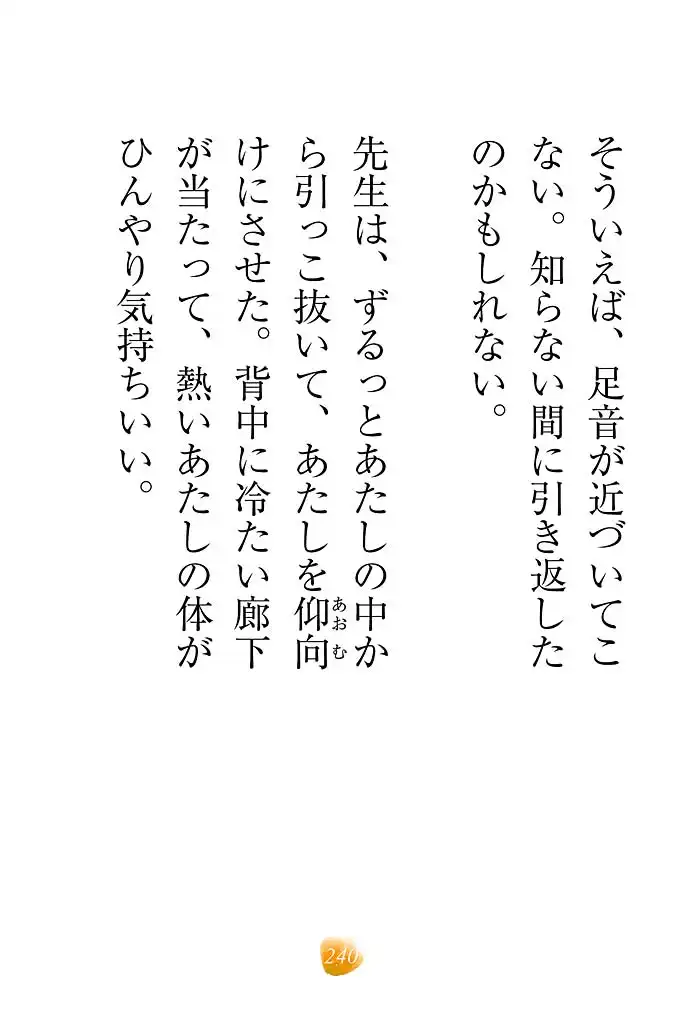 そういえば、足音が近づいてこ
ない。知らない間に引き返した
のかもしれない。
先生は、ずるっとあたしの中か
ら引っこ抜いて、あたしを仰向
あお む
けにさせた。背中に冷たい廊下
が当たって、熱いあたしの体が
ひんやり気持ちいい。
240